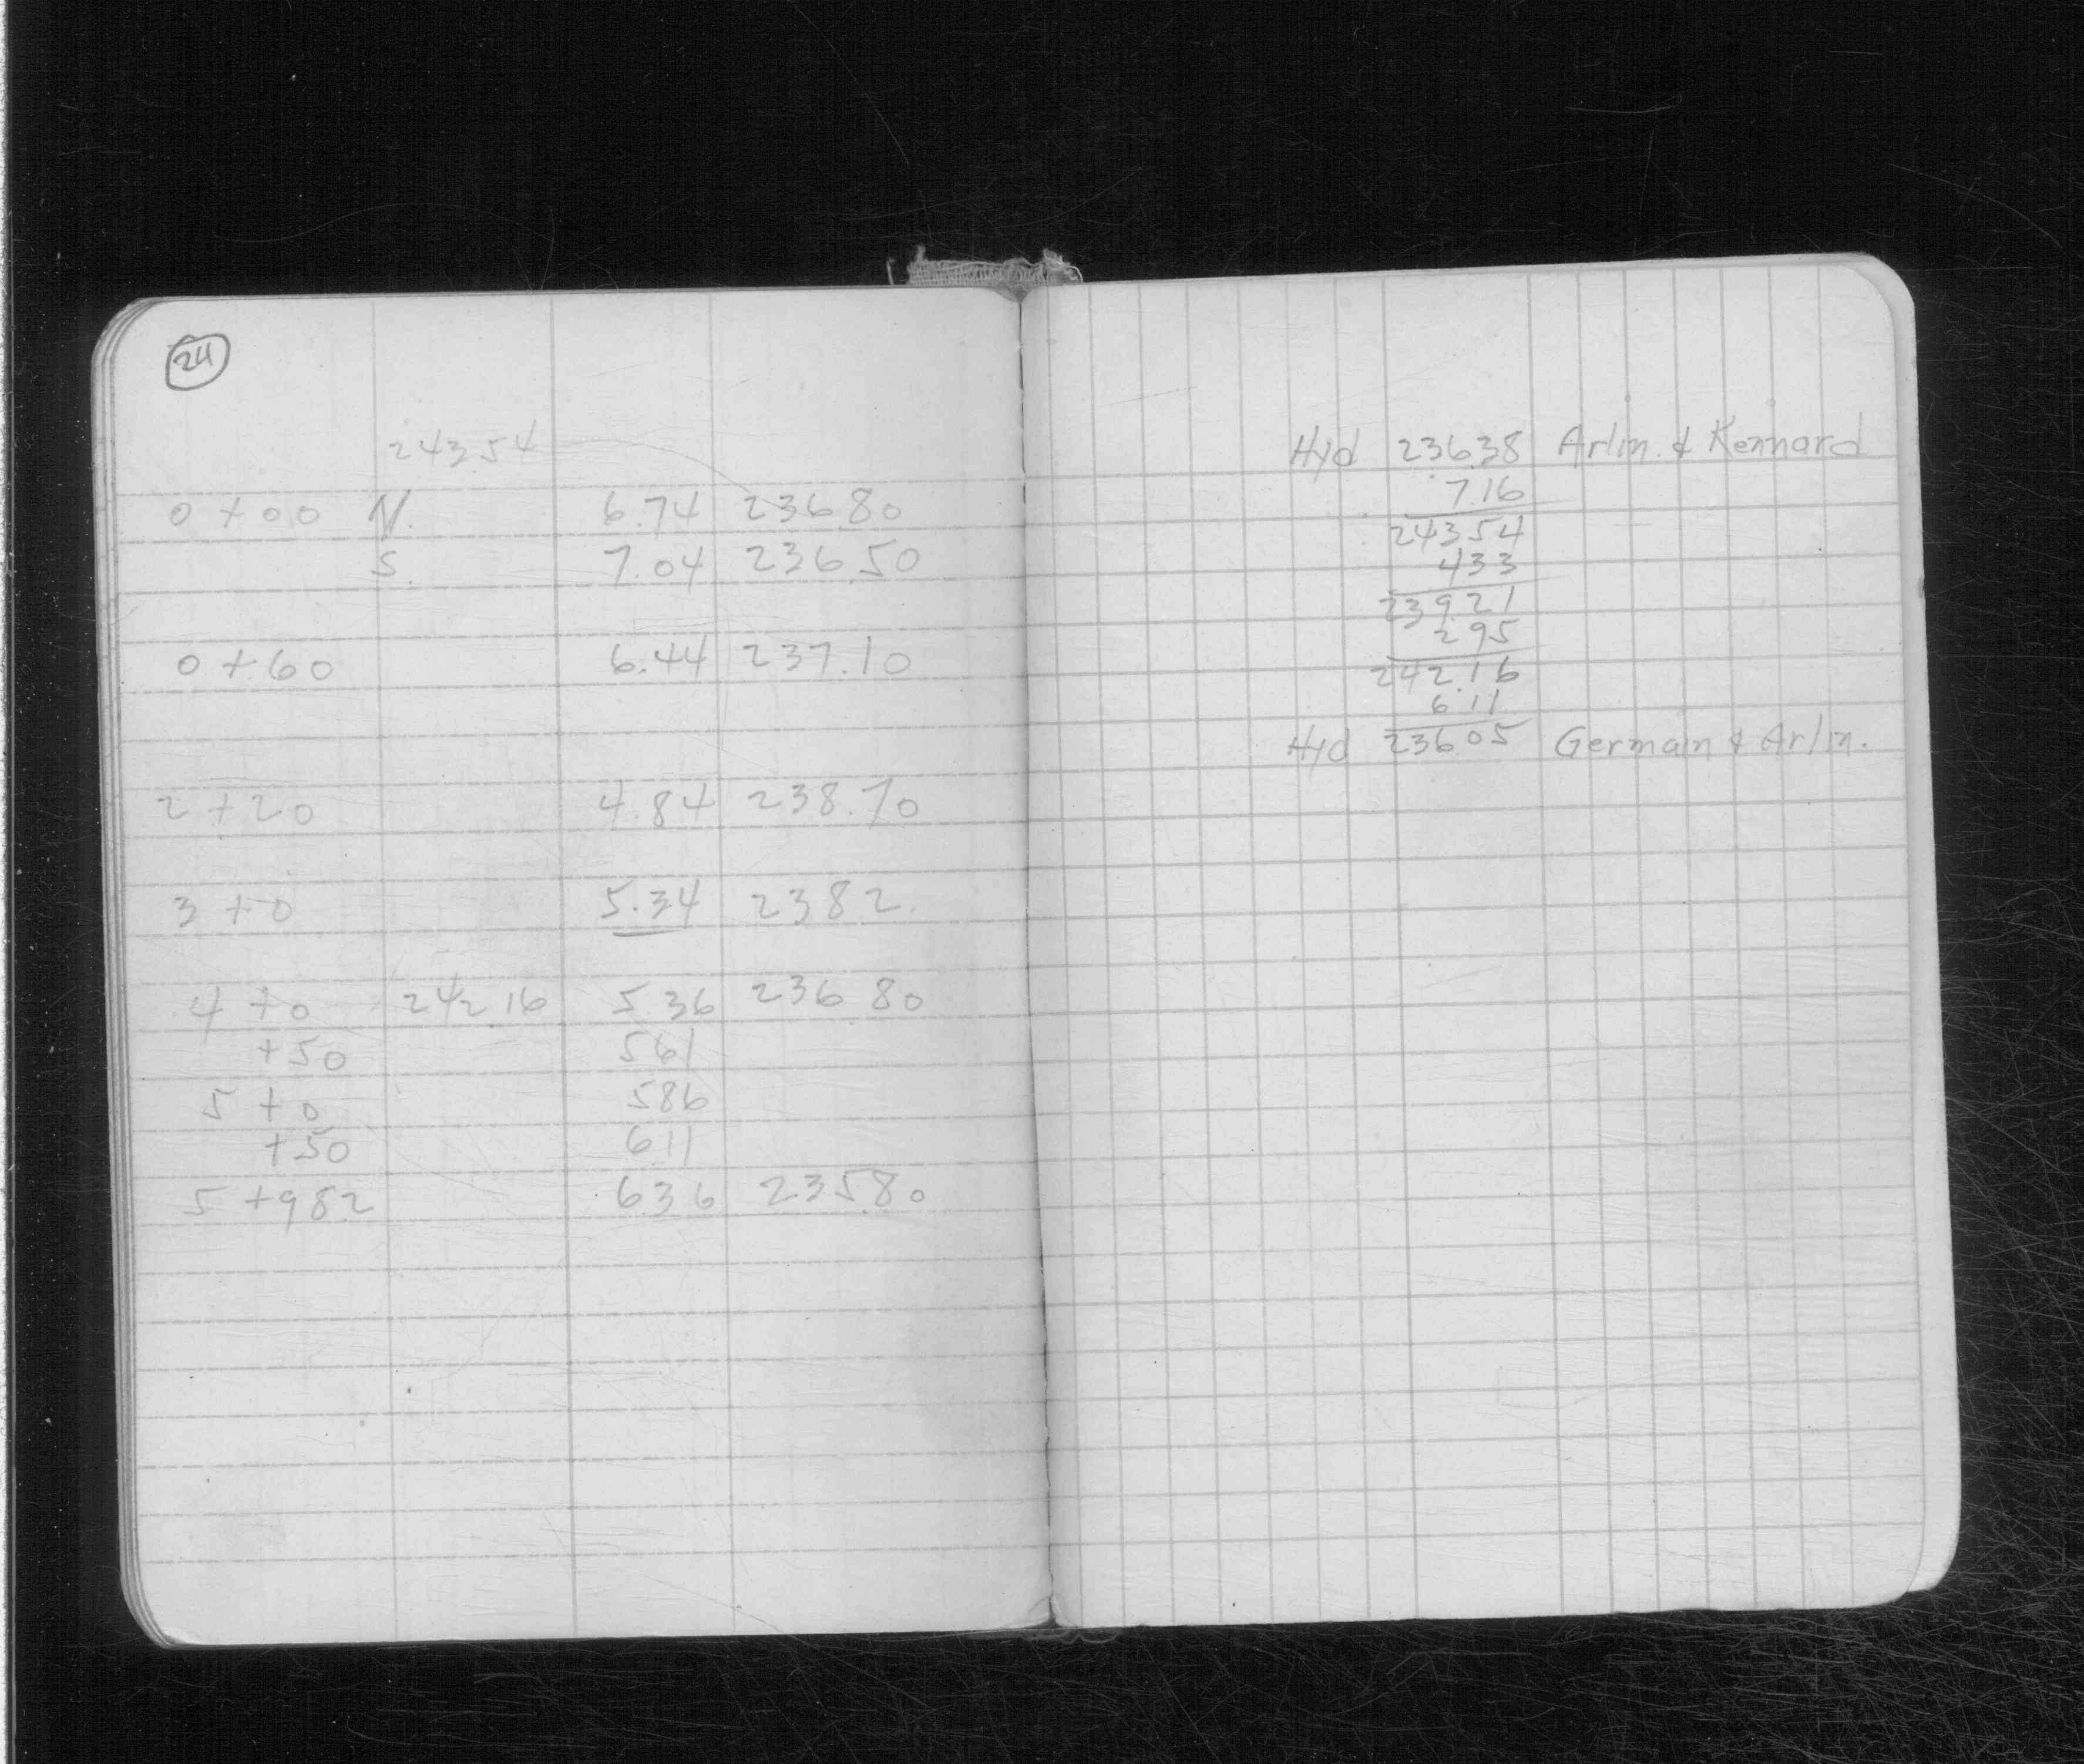 24
243.54
0+00 N. 6.74 236.80
S. 7.04 236.50
0+60 6.44 237.10
2+20 4.84 238.70
3+0 5.34 238 2.
4+0 242 16 5.36 236 80
+50 561
5+0 586
+50 611
5+982 636 235 80
Hyd 236.38 Arlin. & Kennard
7.16
243 54
433
239 21
295
242.16
6 11
Hyd 236 05 Germain & Arlin.